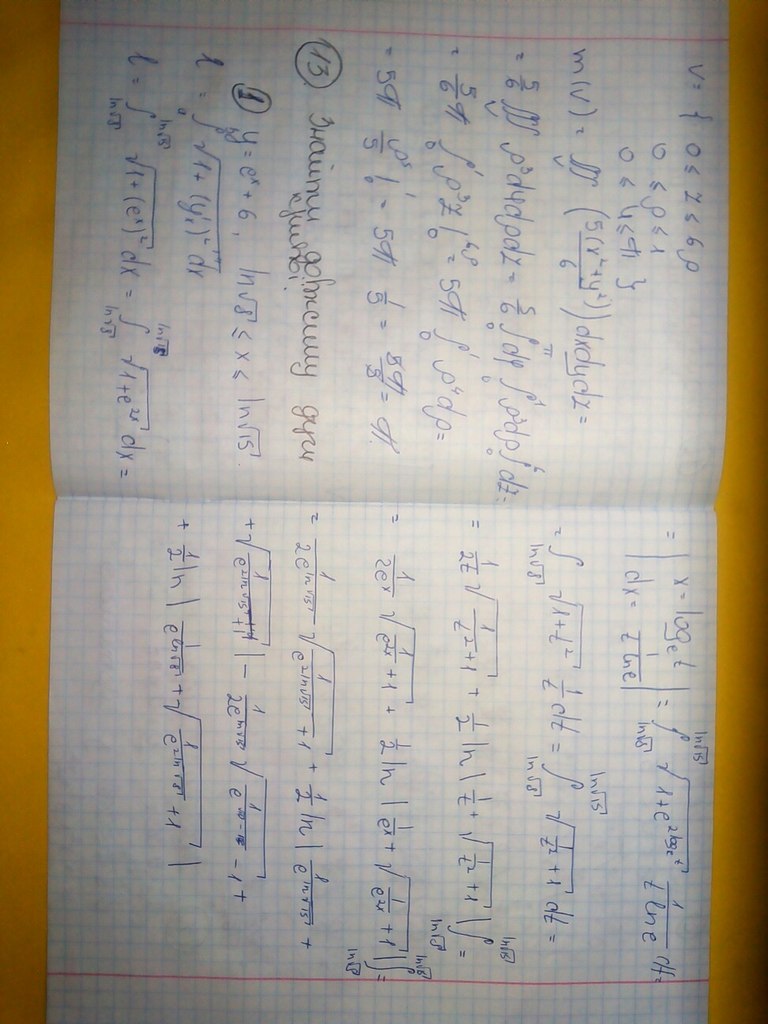 V = { 0 ≤ z ≤ 6ρ
0 ≤ ρ ≤ 1
0 ≤ φ ≤ π }
m(v) = ∭_V (5(x²+y²)/6) dxdydz =
= 5/6 ∭_V ρ³dφdρdz = 5/6 ∫_0^π dφ ∫_0^1 ρ³dρ ∫_0^{6ρ} dz =
= 5/6 π ∫_0^1 ρ³ z |_0^{6ρ} = 5π ∫_0^1 ρ⁴ dρ =
= 5π ρ⁵/5 |_0^1 = 5π 1/5 = 5π/5 = π.
13 Знайти довжину дуги
кривої:
1 y = eˣ + 6, ln√8 ≤ x ≤ ln√15.
l = ∫ √(1 + (y'ₓ)²) dx
l = ∫_{ln√8}^{ln√15} √(1 + (eˣ)²) dx = ∫_{ln√8}^{ln√15} √(1 + e²ˣ) dx =
= | x = logₑt
dx = 1/(t ln e) | = ∫_{ln√8}^{ln√15} √(1 + e^{2logₑt}) 1/(t ln e) dt =
= ∫_{ln√8}^{ln√15} √(1+t²) 1/t dt = ∫_{ln√8}^{ln√15} √(1/t² + 1) dt =
= 1/2t √(1/t² + 1) + 1/2 ln | 1/t + √(1/t² + 1) | ∫_{ln√8}^{ln√15} =
= 1/2eˣ √(1/e²ˣ + 1) + 1/2 ln | 1/eˣ + √(1/e²ˣ + 1) | ∫_{ln√8}^{ln√15} =
= 1/2e^{ln√15} √(1/e^{2ln√15} + 1) + 1/2 ln | 1/e^{ln√15} +
+ √(1/e^{2ln√15} + 1) | − 1/2e^{ln√8} √(1/e − 1 +
+ 1/2 ln | 1/e^{ln√8} + √(1/e^{2ln√8} + 1) |